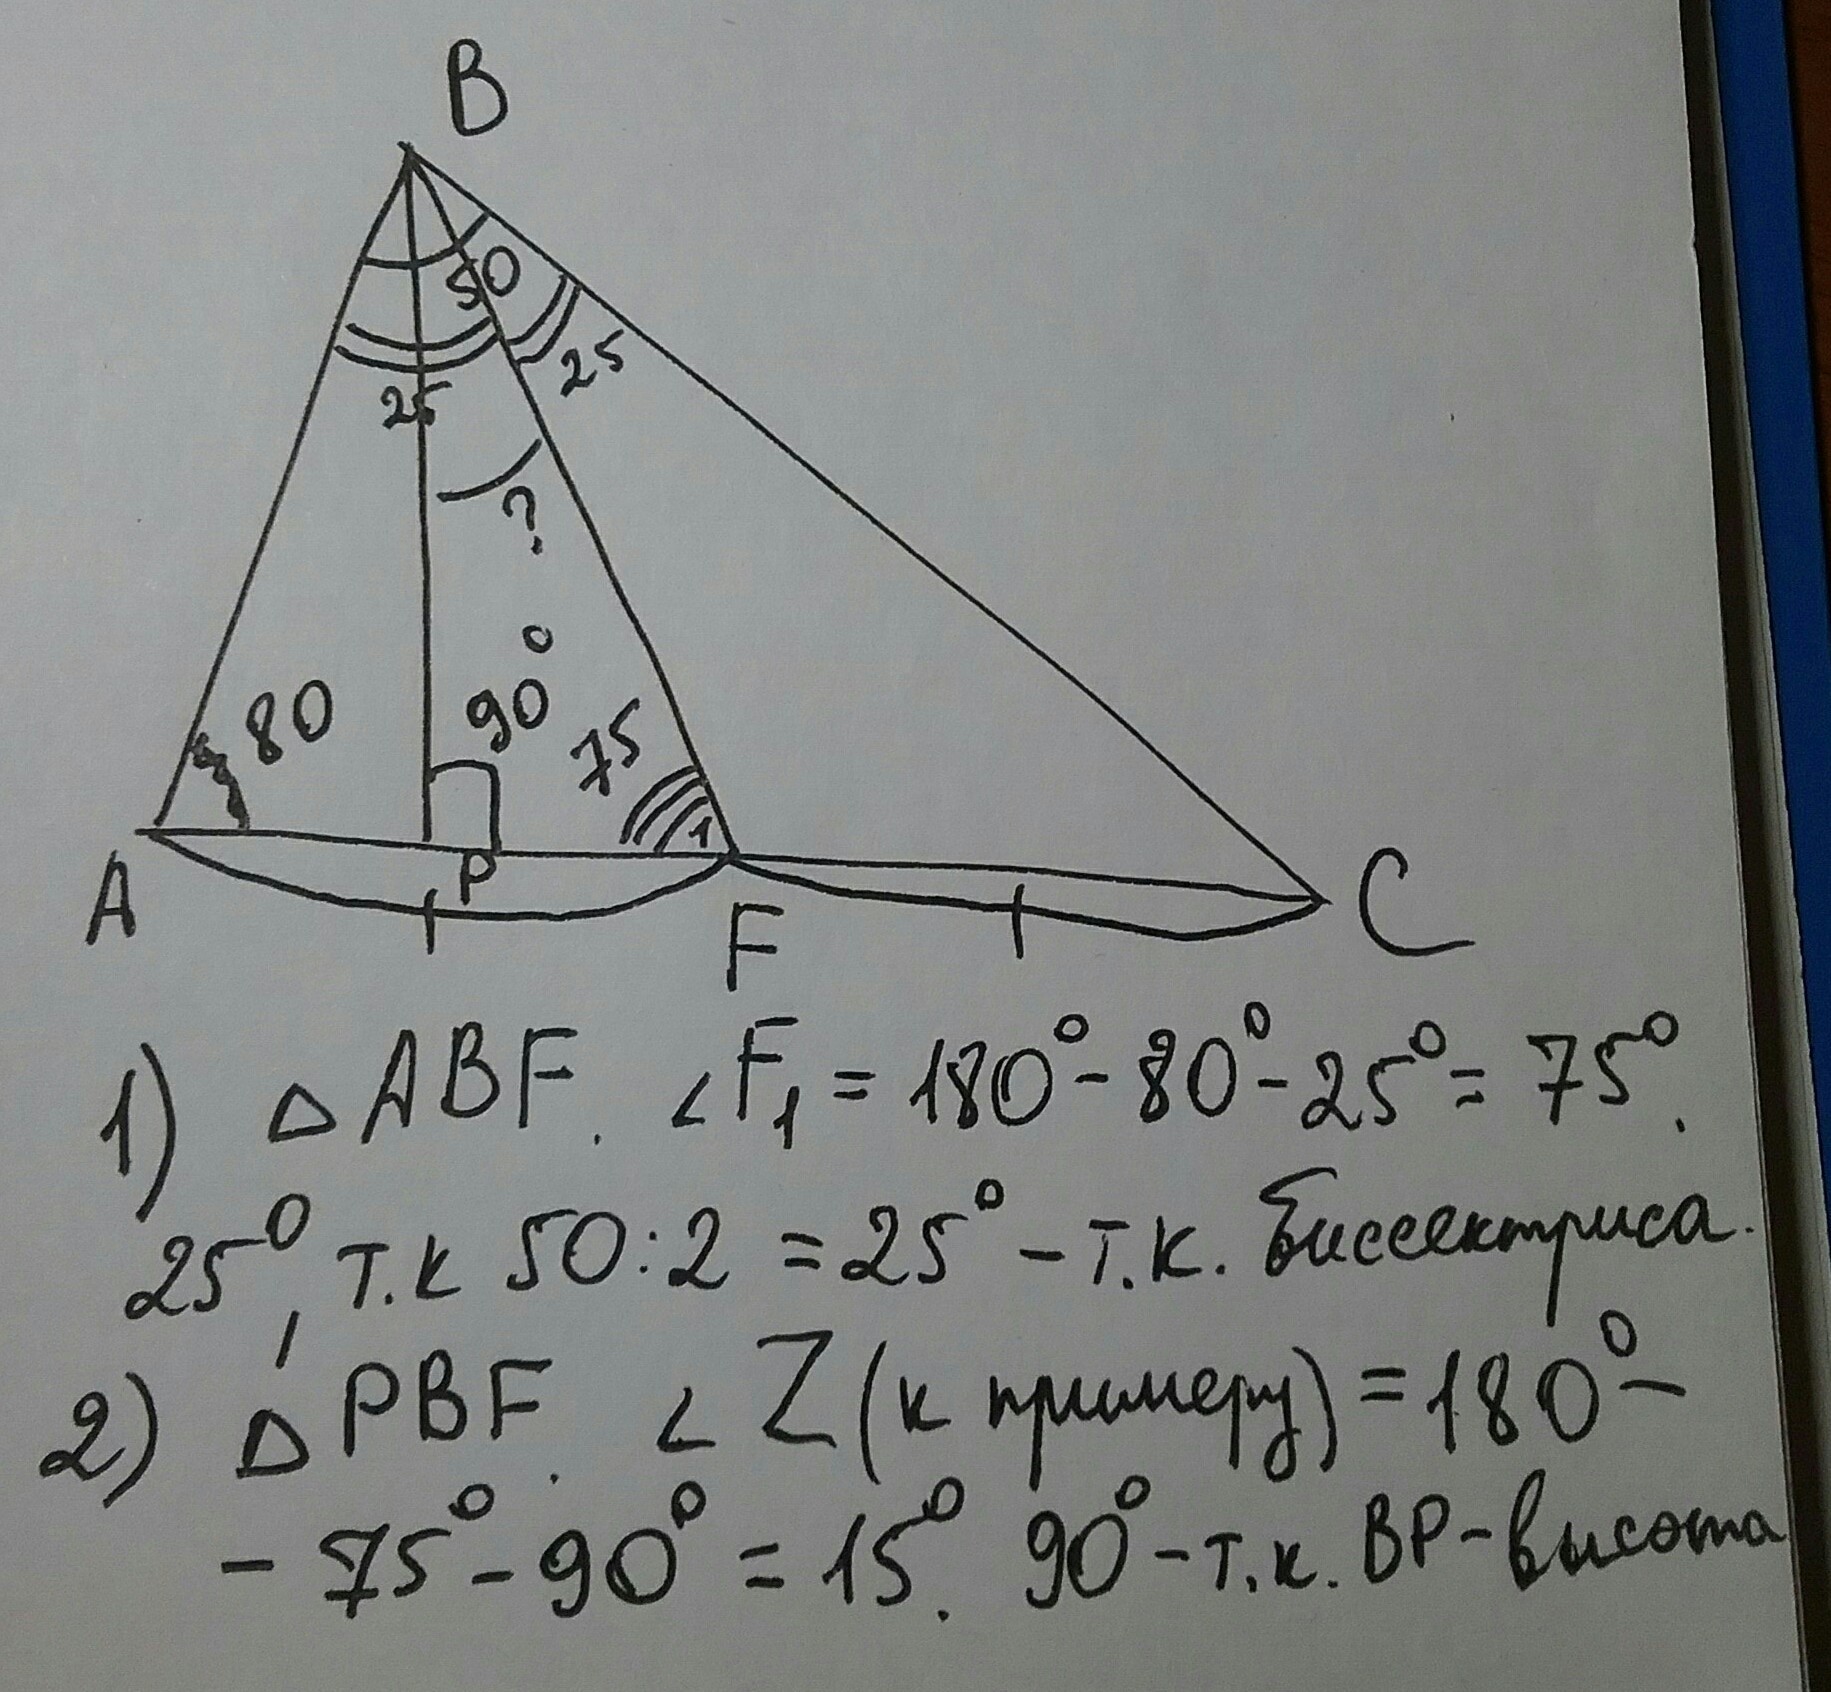 B
50
25
25
?
80
90°
75
1
A
P
F
C
1) △ABF. ∠F₁ = 180° - 80° - 25° = 75°.
25°, т.к 50:2 = 25° - т.к. биссектриса.
2) △PBF. ∠Z (к примеру) = 180° -
- 75° - 90° = 15°. 90° - т.к. BP - высота